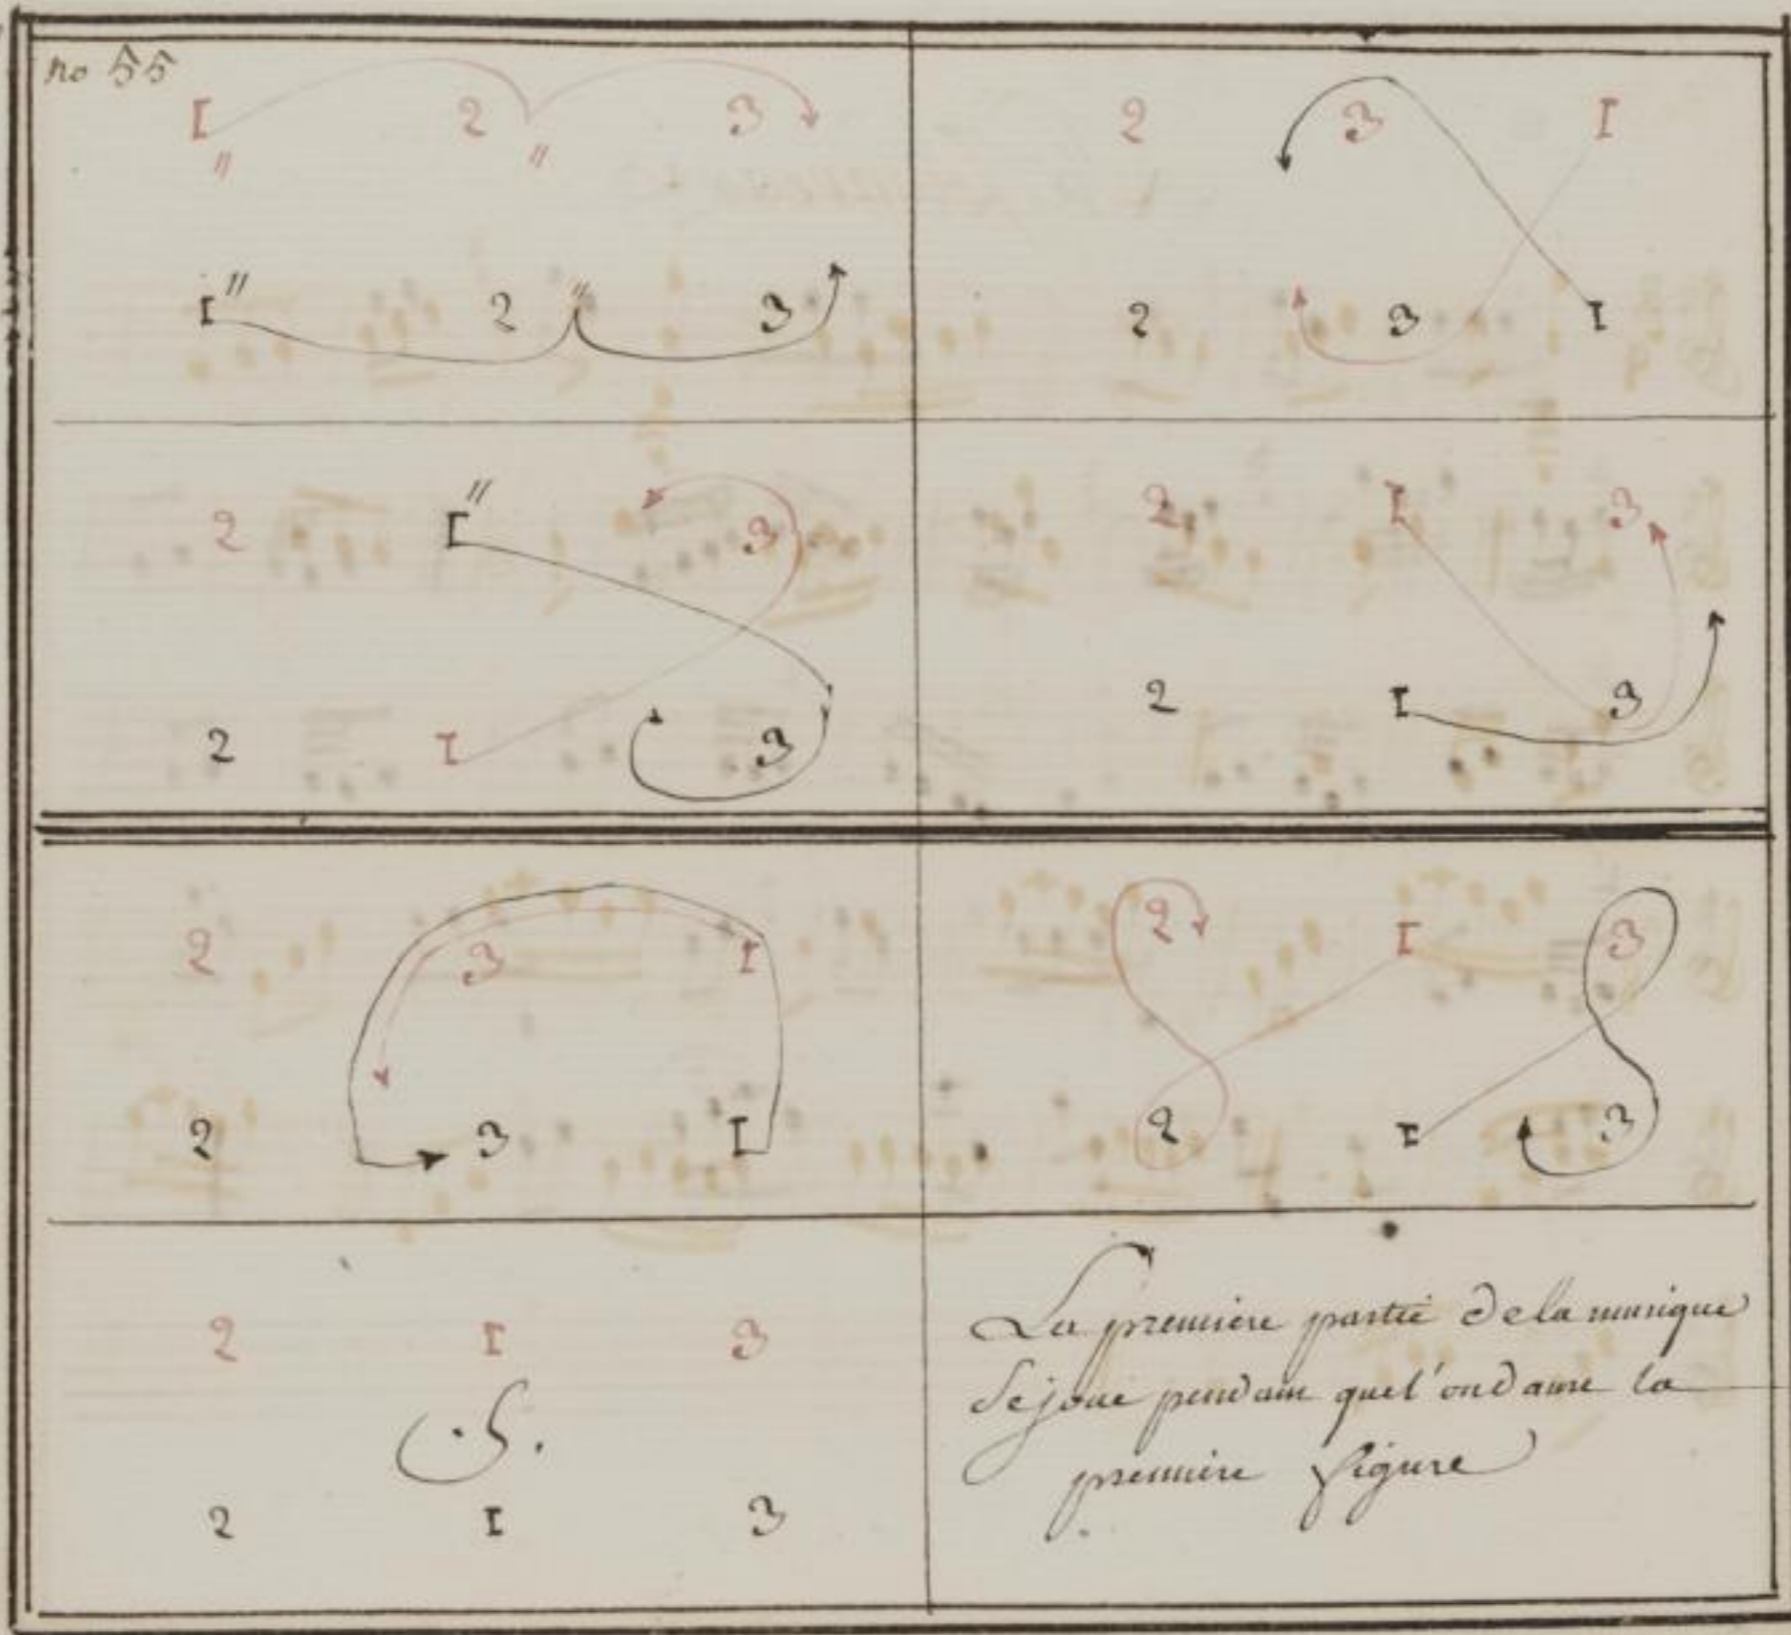 no 55
I 2 3
I 2 3
2 3 I
2 3 I
2 I 3
2 I 3
2 I 3
2 I 3
2 3 I
2 3 I
2 I 3
2 I 3
2 I 3
.S.
2 I 3
La premiere partie de la musique
se joue pendant que l'on danse la
premiere figure